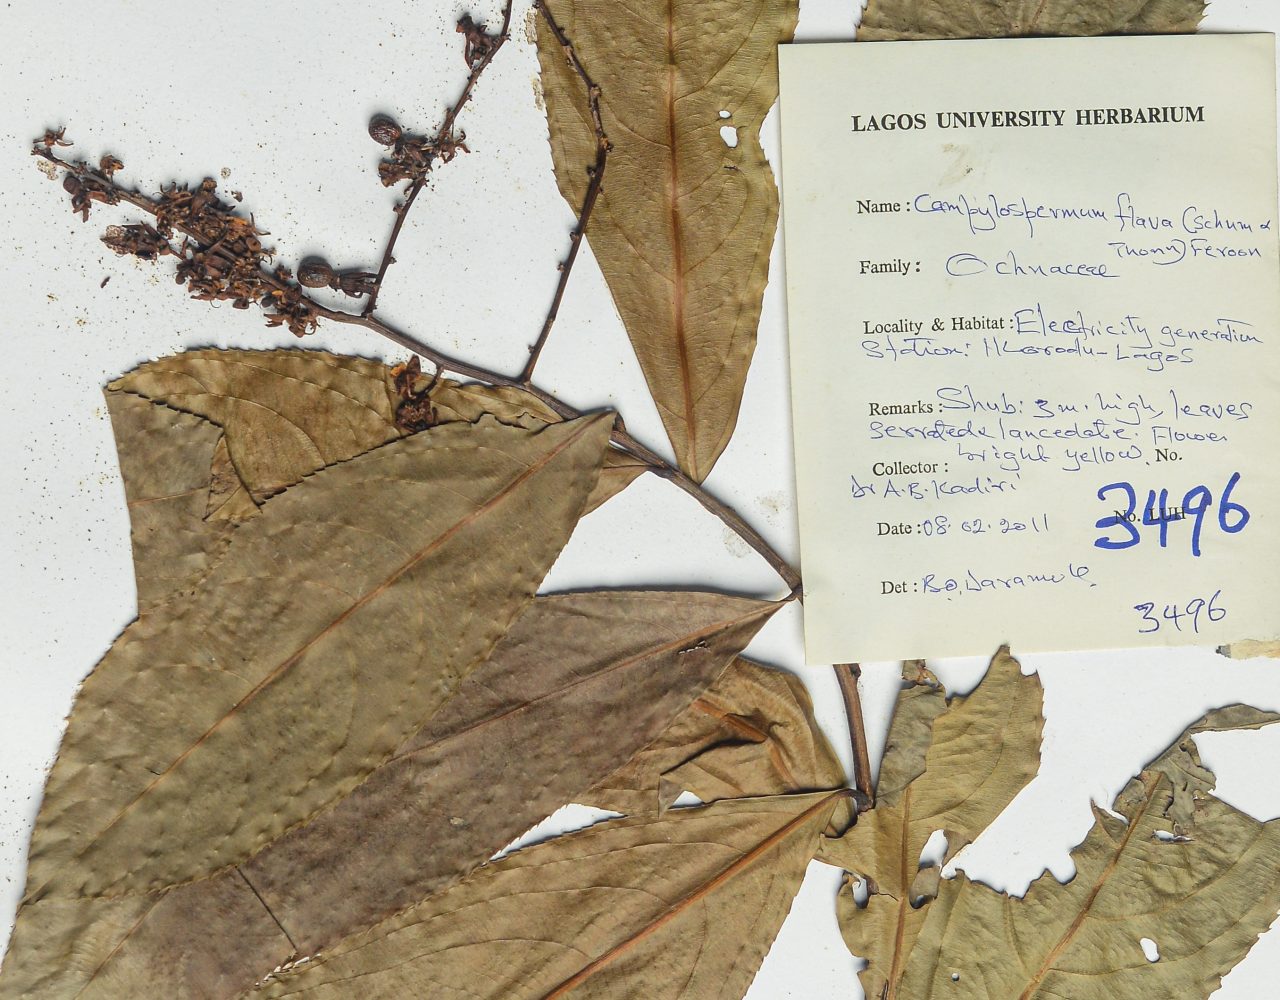 LAGOS UNIVERSITY HERBARIUM
Name : Campylospermum flava (Schum &
Thonn) Feroon
Family : Ochnaceae
Locality & Habitat : Electricity generation
Station: Ikorodu - Lagos
Remarks : Shub: 3m. high, leaves
serrated & lancedate. Flower
bright yellow. No.
Collector :
Dr A.B. Kadiri
No. LUH 3496
Date : 08. 02. 2011
Det : B.O. Daramola
3496